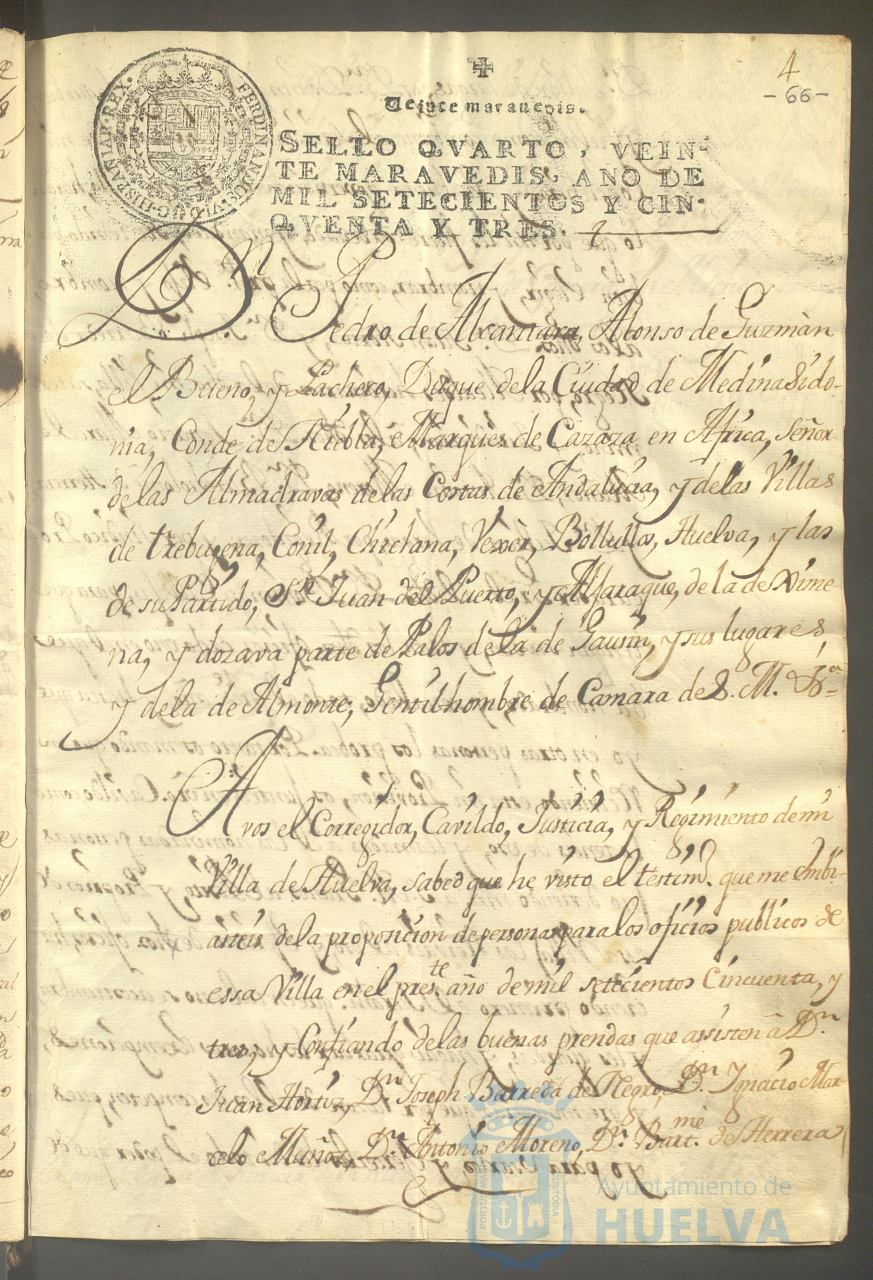 4
-66-
Veinte maravedis.
SELLO QVARTO, VEIN-
TE MARAVEDIS, AÑO DE
MIL SETECIENTOS Y CIN-
QVENTA Y TRES.
FERDINANDUS·VI·D·G·HISPANIAR·REX·
Dn Pedro de Alcantara, Alonso de Guzmàn
el Bueno, y Pacheco, Duque de la Ciudad de Medina Sido-
nia, Conde de Niebla, Marques de Cazaza en Africa, Señor
de las Almadravas de las Costas de Andalucia, y de las Villas
de trebugena, Conil, Chiclana, Vexèr, Bollullos, Huelva, y las
de su Partido, Sn Juan del Puerto, y Aljaraque, de la de Xime-
na, y dozava parte de Palos de la de Gausin, y sus lugares,
y de la de Almonte, Gentilhombre de Camara de S. M. &
A vos el Corregidor, Cavildo, Justicia, y Regimiento de mi
Villa de Huelva, sabed que he visto el testimo. que me embi-
asteis de la proposicion de personas para los oficios publicos de
essa Villa en el preste. año de mil setecientos Cincuenta, y
tres, y Confiando de las buenas prendas que assisten â Dn
Juan Hortiz, Dn Joseph Barreda de Negro, Dn Ignacio Mar-
celo Muñoz, Dn Antonio Moreno, Dn Bartme. de Herrera
Ayuntamiento de
HUELVA